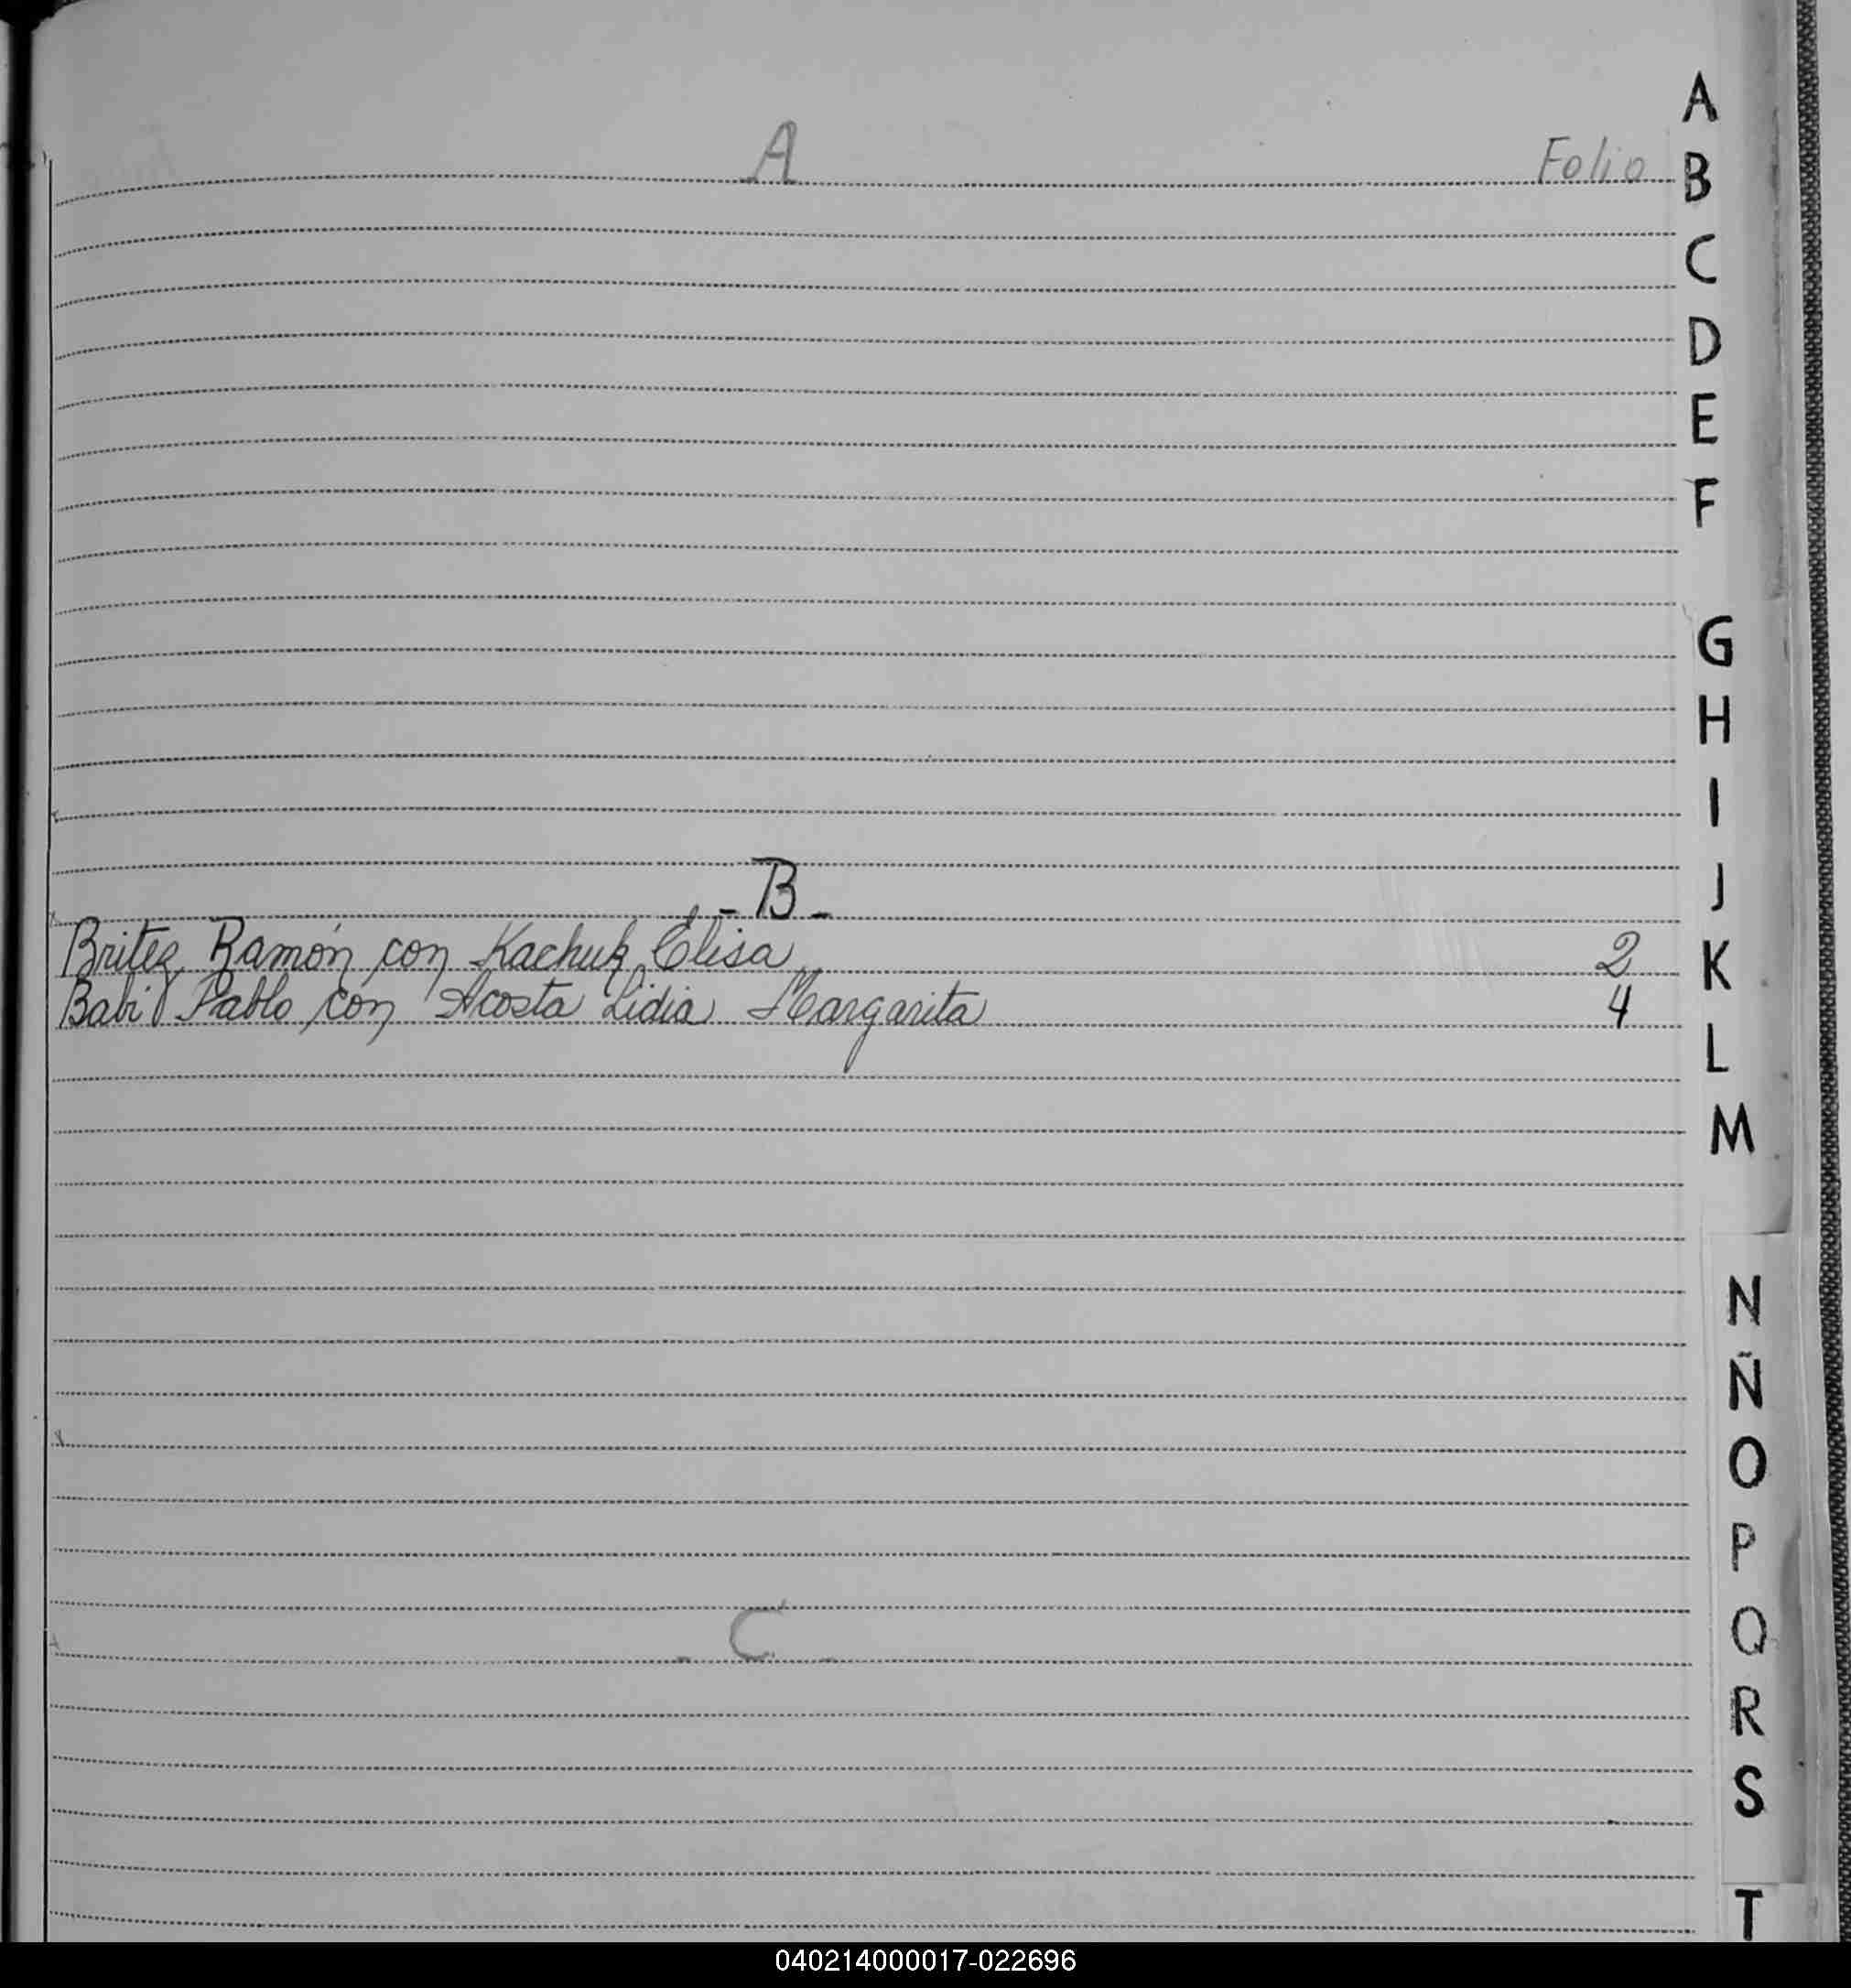 A Folio
- B -
Britez Ramón con Kachuk Elisa 2
Babi Pablo con Acosta Lidia Margarita 4
- C -
A
B
C
D
E
F
G
H
I
J
K
L
M
N
Ñ
O
P
Q
R
S
T
040214000017-022696